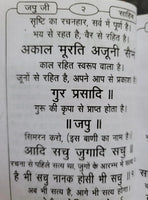 जपु जी २ साहिब
सृष्टि का रचनहार, सर्व में पूर्ण है।
भय से रहत है, वैर से रहित है।
अकाल मूरति अजूनी सैभं
काल रहित स्वरूप वाला है।
जूनों से रहत है, अपने आप से प्रकाश
गुर प्रसादि ॥
गुरु की कृपा से प्राप्त होता है।
॥ जपु ॥
सिमरन करो, (इस बाणी का नाम है)
आदि सचु जुगादि सचु ॥
रचना से पहिले सत्य था, जुगों के आरम्भ में सत्य
है भी सचु नानक होसी भी सचु ॥
अब भी सत्य है, आगे भी सत्य होगा।